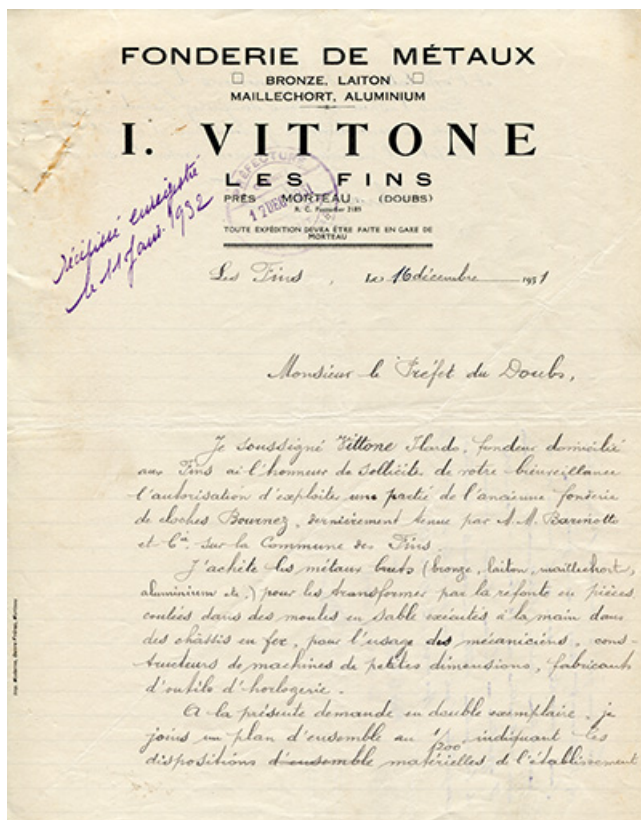 FONDERIE DE MÉTAUX
BRONZE, LAITON
MAILLECHORT, ALUMINIUM
I. VITTONE
LES FINS
PRÈS MORTEAU (DOUBS)
R. C. Pontarlier 2185
TOUTE EXPÉDITION DEVRA ÊTRE FAITE EN GARE DE
MORTEAU
PRÉFECTURE
17 DEC
Récépissé enregistré
le 11 Janv. 1932
Les Fins, Le 16 décembre 1931
Monsieur le Préfet du Doubs,
Je soussigné Vittone Ilardo, fondeur domicilié
aux Fins ai l'honneur de solliciter de votre bienveillance
l'autorisation d'exploiter une partie de l'ancienne fonderie
de cloches Bournez, dernièrement tenue par M.M. Barinotto
et Cie sur la Commune des Fins.
J'achète les métaux bruts (bronze, laiton, maillechort,
aluminium etc.) pour les transformer par la refonte en pièces
coulées dans des moules en sable exécutés à la main dans
des châssis en fer, pour l'usage des mécaniciens, cons-
tructeurs de machines de petites dimensions, fabricants
d'outils d'horlogerie.
A la présente demande en double exemplaire, je
joins un plan d'ensemble au 1/200 indiquant les
dispositions d'ensemble matérielles de l'établissement